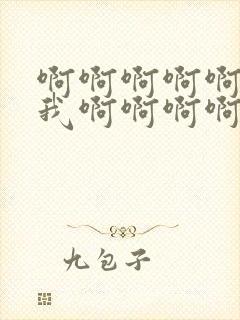 啊啊啊啊啊
我啊啊啊啊
九包子